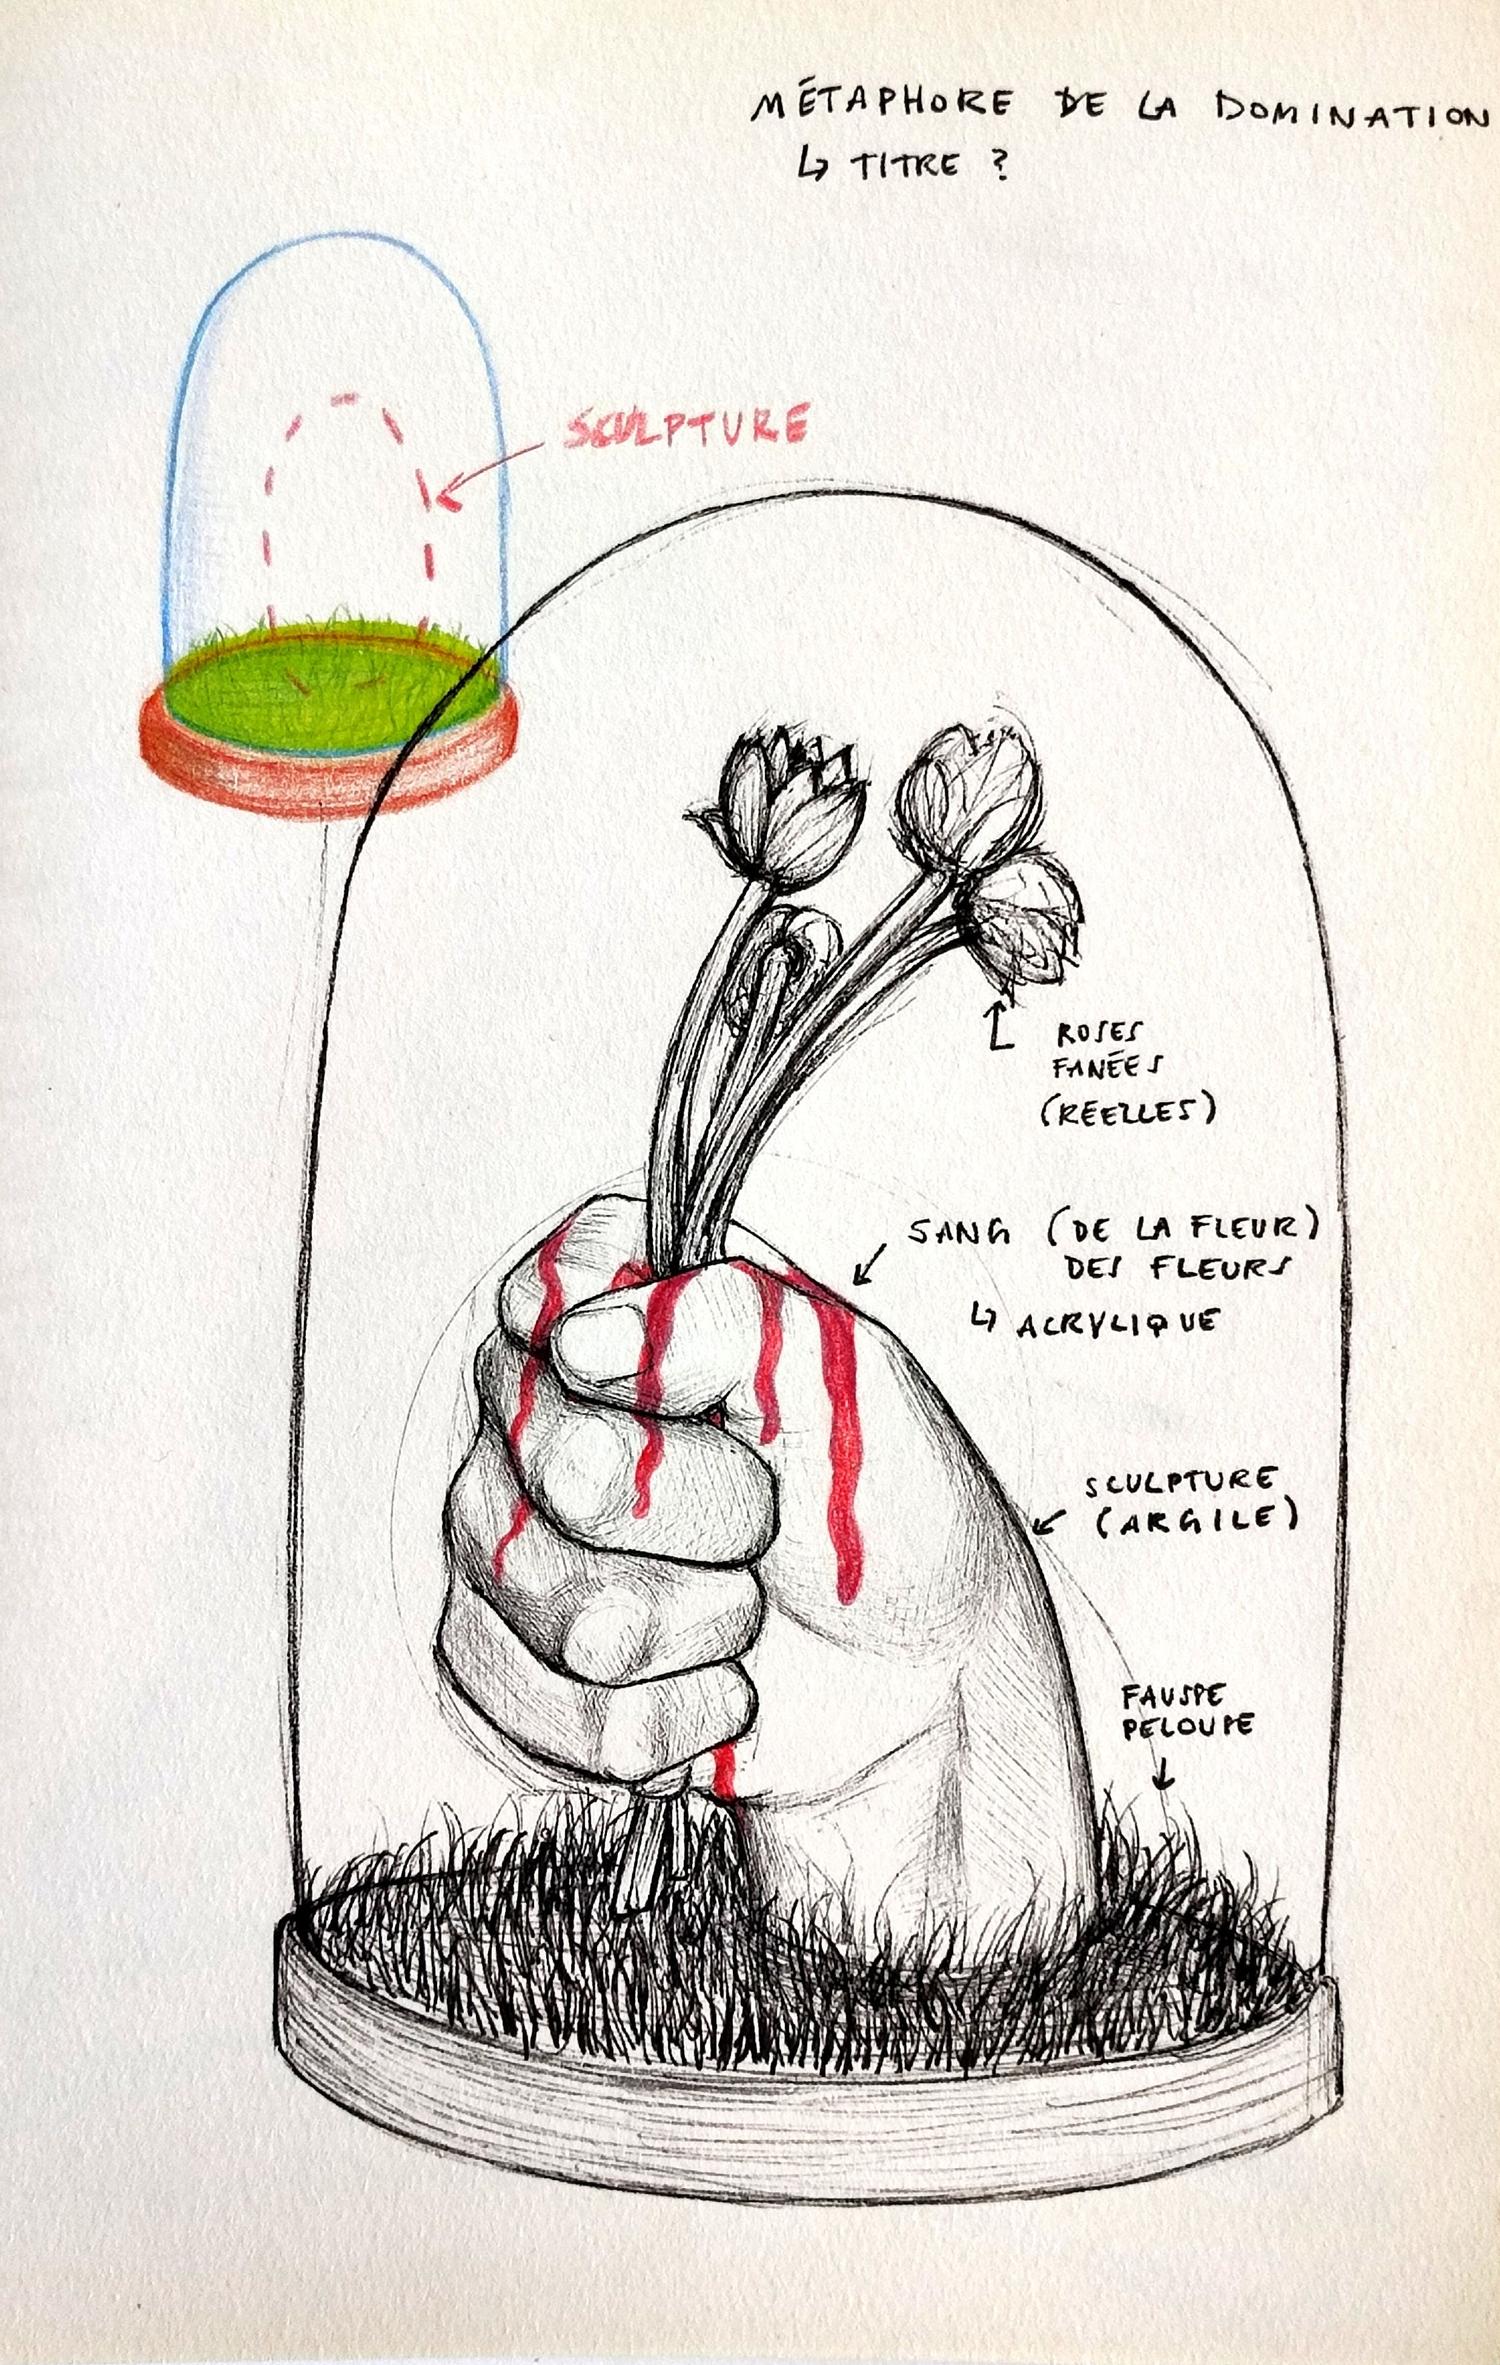 MÉTAPHORE DE LA DOMINATION
↳ TITRE ?
SCULPTURE
ROSES
FANÉES
(RÉELLES)
SANG (DE LA FLEUR)
DES FLEURS
↳ ACRYLIQUE
SCULPTURE
(ARGILE)
FAUSSE
PELOUSE